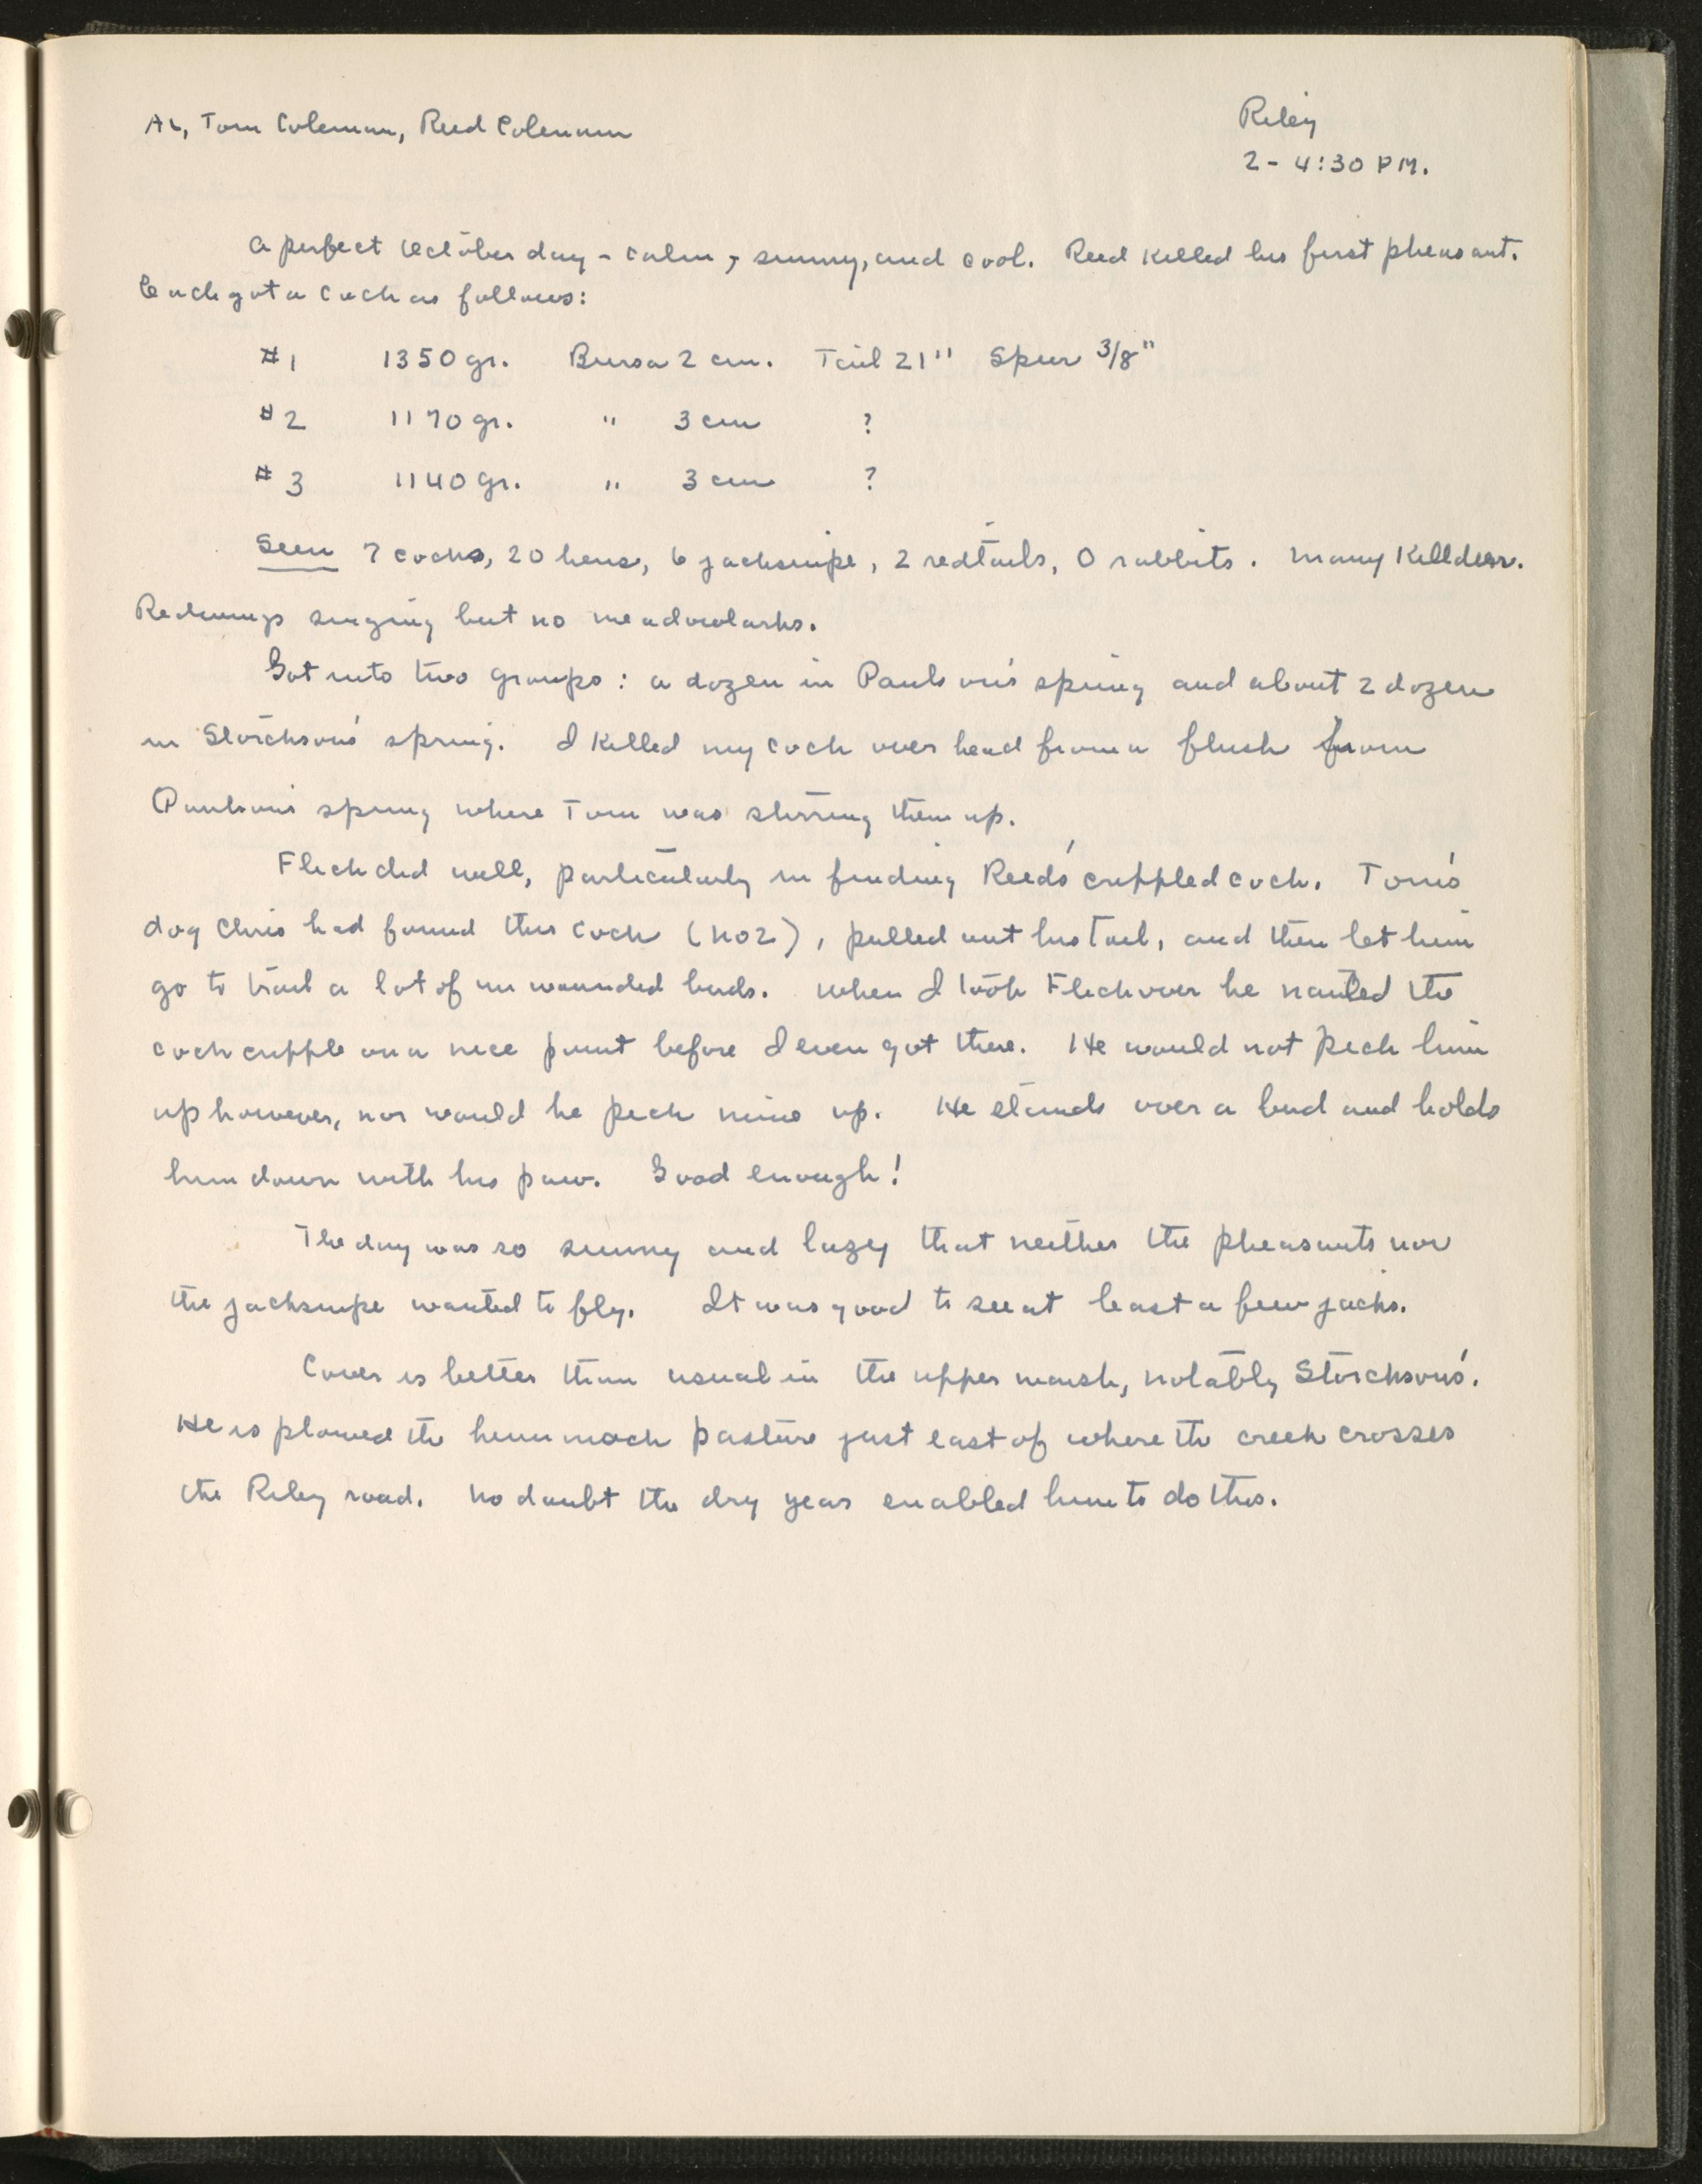 AL, Tom Coleman, Reed Coleman
Riley
2 - 4:30 PM.
A perfect October day - calm, sunny, and cool. Reed killed his first pheasant.
Each got a cock as follows:
#1 1350 gr. Bursa 2 cm. Tail 21" Spur 3/8"
#2 1170 gr. " 3 cm ?
#3 1140 gr. " 3 cm ?
Seen 7 cocks, 20 hens, 6 jacksnipe, 2 redtails, 0 rabbits. Many Killdeer.
Redwings singing but no meadowlarks.
Got into two groups: a dozen in Paulson's spring and about 2 dozen
in Storchson's spring. I killed my cock over head from a flush from
Paulson's spring where Tom was stirring them up.
Flick did well, particularly in finding Reed's crippled cock. Tom's
dog Chris had found this cock (No 2), pulled out his tail, and then let him
go to trail a lot of unwounded birds. When I took Flick over he nailed the
cock cripple on a nice point before I even got there. He would not pick him
up however, nor would he pick mine up. He stands over a bird and holds
him down with his paw. Good enough!
The day was so sunny and lazy that neither the pheasants nor
the jacksnipe wanted to fly. It was good to see at least a few jacks.
Cover is better than usual in the upper marsh, notably Storchson's.
He is plowed the hummock pasture just east of where the creek crosses
the Riley road. No doubt the dry year enabled him to do this.